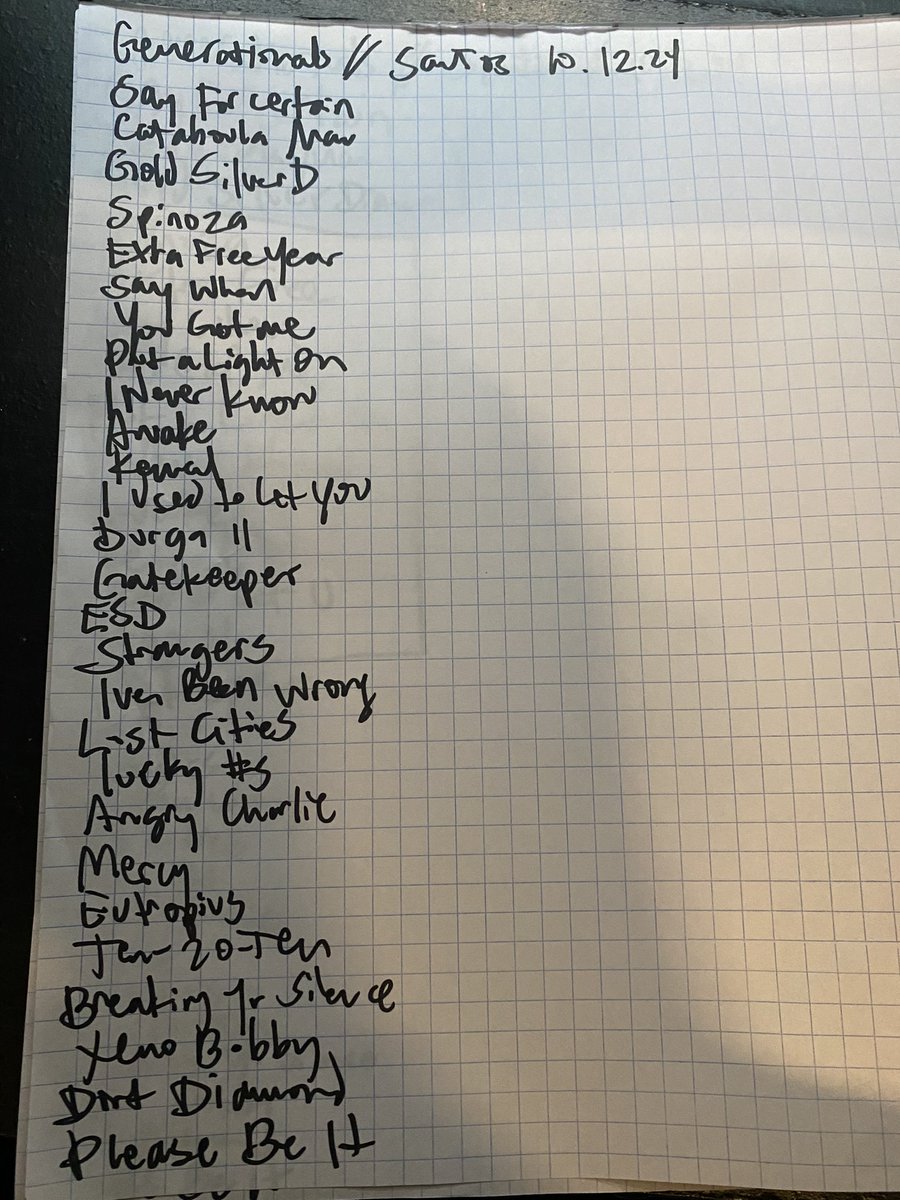 Generationals // Santos 10.12.24
Say For certain
Catahoula Man
Gold Silver D
Spinoza
Extra Free Year
Say When
You Got me
Put a Light On
I Never Know
Awake
Kemal
I Used to Let You
Durga II
Gatekeeper
ESD
Strangers
I've Been Wrong
Lost Cities
lucky #s
Angry Charlie
Mercy
Eutropius
Ten-20-Ten
Breaking Yr Silence
Xeno Bobby
Dirt Diamond
Please Be It